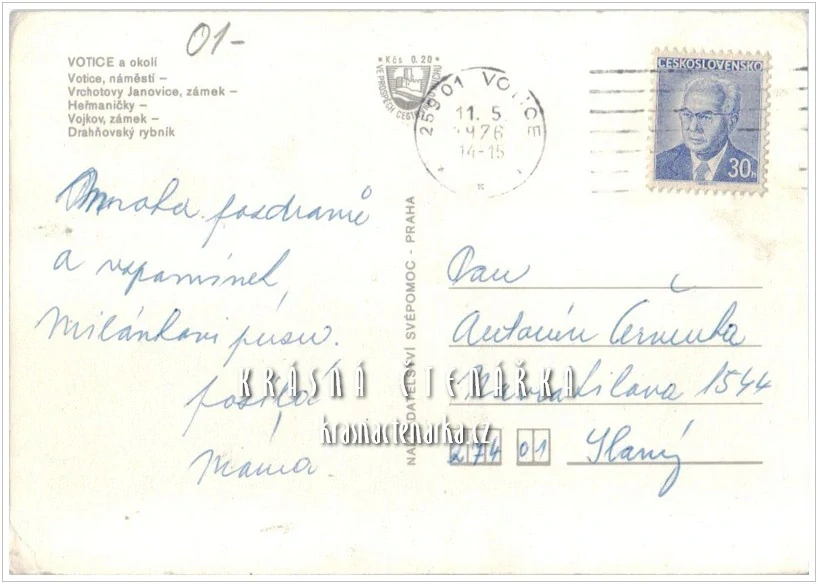 01-
VOTICE a okolí
Votice, náměstí –
Vrchotovy Janovice, zámek –
Heřmaničky –
Vojkov, zámek –
Drahňovský rybník
* Kčs 0.20 *
VE PROSPĚCH
259 01 VOTICE
11. 5.
1976
14-15
ČESKOSLOVENSKO
30h
Mnoho pozdravů
a vzpomínek,
Milánkovi pusu.
posílá
Máma.
NAKLADATELSTVÍ SVÉPOMOC - PRAHA
Pan
Antonín Červenka
Navrátilova 1544
274 01 Slaný
KRÁSNÁ ČTENÁŘKA
krasnactenarka.cz